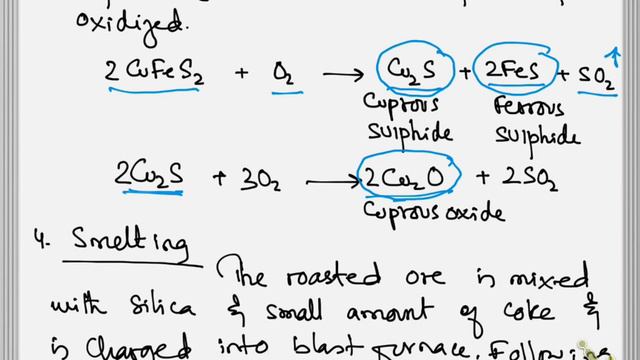 oxidized.
2CuFeS₂ + O₂ ⟶ Cu₂S + 2FeS + SO₂↑
Cuprous Ferrous
sulphide sulphide
2Cu₂S + 3O₂ ⟶ 2Cu₂O + 2SO₂
Cuprous oxide
4. Smelting
The roasted ore is mixed
with silica & small amount of coke &
is charged into blast furnace. Following